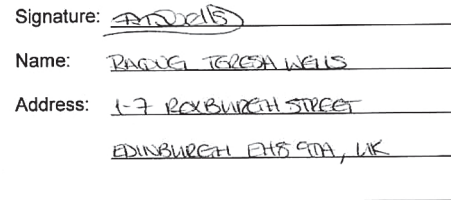 Signature:
Name: TERESA WELLS
Address: 1-7 ROXBURGH STREET
EDINBURGH EH8 9TA, UK